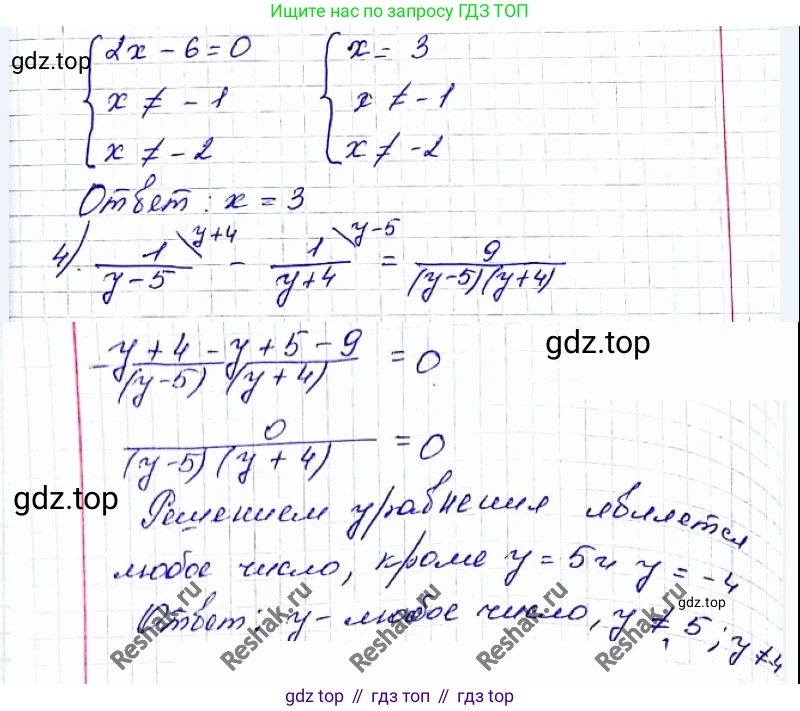 Ищите нас по запросу ГДЗ ТОП
gdz.top
{ 2x - 6 = 0
x ≠ - 1
x ≠ - 2
{ x = 3
x ≠ - 1
x ≠ - 2
Ответ: x = 3
4). 1/(y - 5) \y+4 - 1/(y+4) \y-5 = 9/((y-5)(y+4))
gdz.top
-y + 4 - y + 5 - 9 / (y-5) (y+4) = 0
0 / (y-5) (y + 4) = 0
gdz.top
Решением уравнения является
любое число, кроме y = 5 и y = -4
gdz.top
Ответ: y - любое число, y ≠ 5; y ≠ -4
Reshak.ru
Reshak.ru
Reshak.ru
Reshak.ru
Reshak.ru
gdz top // гдз топ // gdz top // гдз топ